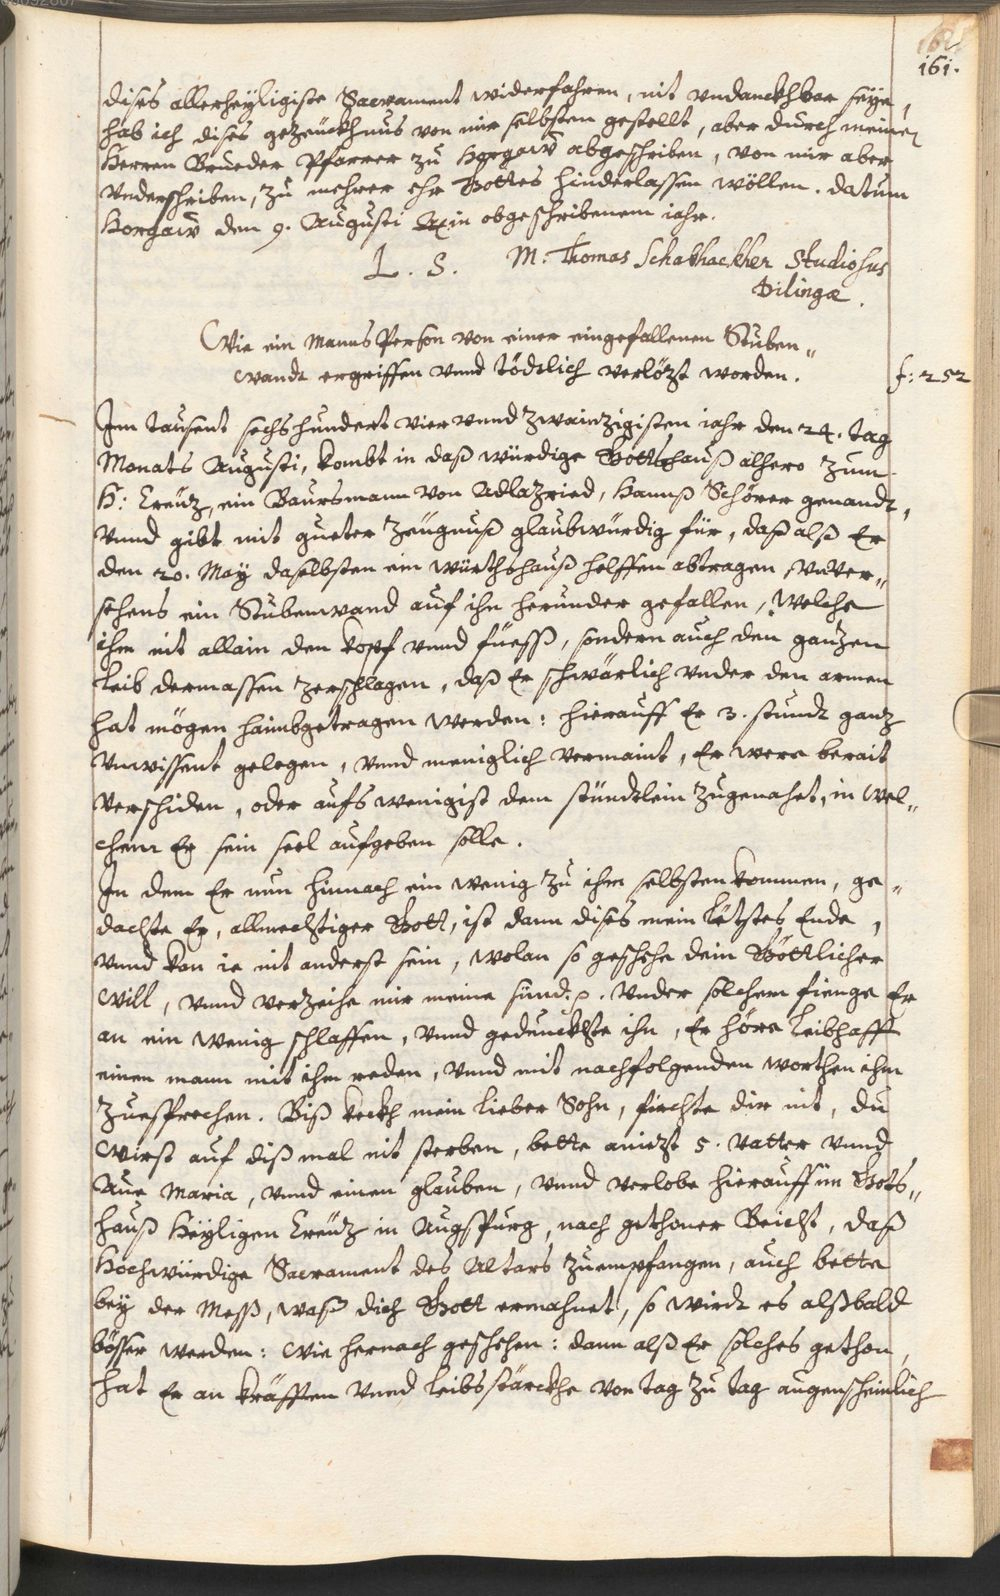 161.
dises allerheyligiste Sacrament widerfahren, nit vndanckhbar seye,
hab ich dises gezeückhnus von mir selbsten gestellt, aber durch meinen
Herren Brueder Pfarrer zu Horgaw abgeschriben, von mir aber
vnderschriben, zu mehrer ehr Gottes hinderlassen wöllen. Datum
Horgaw den 9. Augusti in obgeschribenem iahr.
L. S. M. Thomas Schabhackher Studiosus
Dilingæ.
Wie ein Manns Person von einer eingefallenen Stuben„
wandt ergriffen vnnd tödtlich verlözt worden.
f: 252
Inn tausent sechshundert vier vnnd zwainzigisten iahr den 24. tag
Monats Augusti, kombt in daß würdige Gottshauß alhero zum
H: Creüz, ein Baursmann von Adlazried, Hannß Schörer genandt,
vnnd gibt mit gueter zeügnuß glaubwürdig für, daß alß Er
den 20. May daselbsten ein würthshauß helffen abtragen, vnver„
sehens ein Stubenwand auf ihn herunder gefallen, welche
ihm nit allain den kopf vnnd füeß, sondern auch den ganzen
leib dermassen zerschlagen, daß Er schwärlich vnder den armen
hat mögen haimbgetragen werden: hierauff Er 3. stundt ganz
vnwissent gelegen, vnnd meniglich vermaint, Er were berait
verschiden, oder aufs wenigist dem stündtlein zugenahet, in wel„
chem Er sein seel aufgeben solle.
In dem Er nun hinnach ein wenig zu ihm selbsten kommen, ge„
dachte Er, allmechtiger Gott, ist dann dises mein letstes Ende,
vnnd kan ie nit anderst sein, wolan so geschehe dein Göttlicher
will, vnnd verzeihe mir meine sünd. p. Vnder solchem fienge Er
an ein wenig schlaffen, vnnd gedunckhte ihn, Er höre leibhafft
einen mann mit ihm reden, vnnd mit nachfolgenden worthen ihm
zuesprechen. Biß keckh mein lieber Sohn, fürchte dir nit, du
wirst auf dißmal nit sterben, bette aniezt 5. Vatter vnnd
Aue Maria, vnnd einen glauben, vnnd verlobe hierauff im Gots„
hauß Heyligen Creüz in Augspurg, nach gethoner Beicht, daß
Hochwürdige Sacrament des Altars zuempfangen, auch bette
bey der Meß, waß dich Gott ermahnet, so wirdt es alßbald
besser werden: wie hernach geschehen: dann alß Er solches gethon,
hat Er an kräfften vnnd leibsstärckhe von tag zu tag augenscheinlich